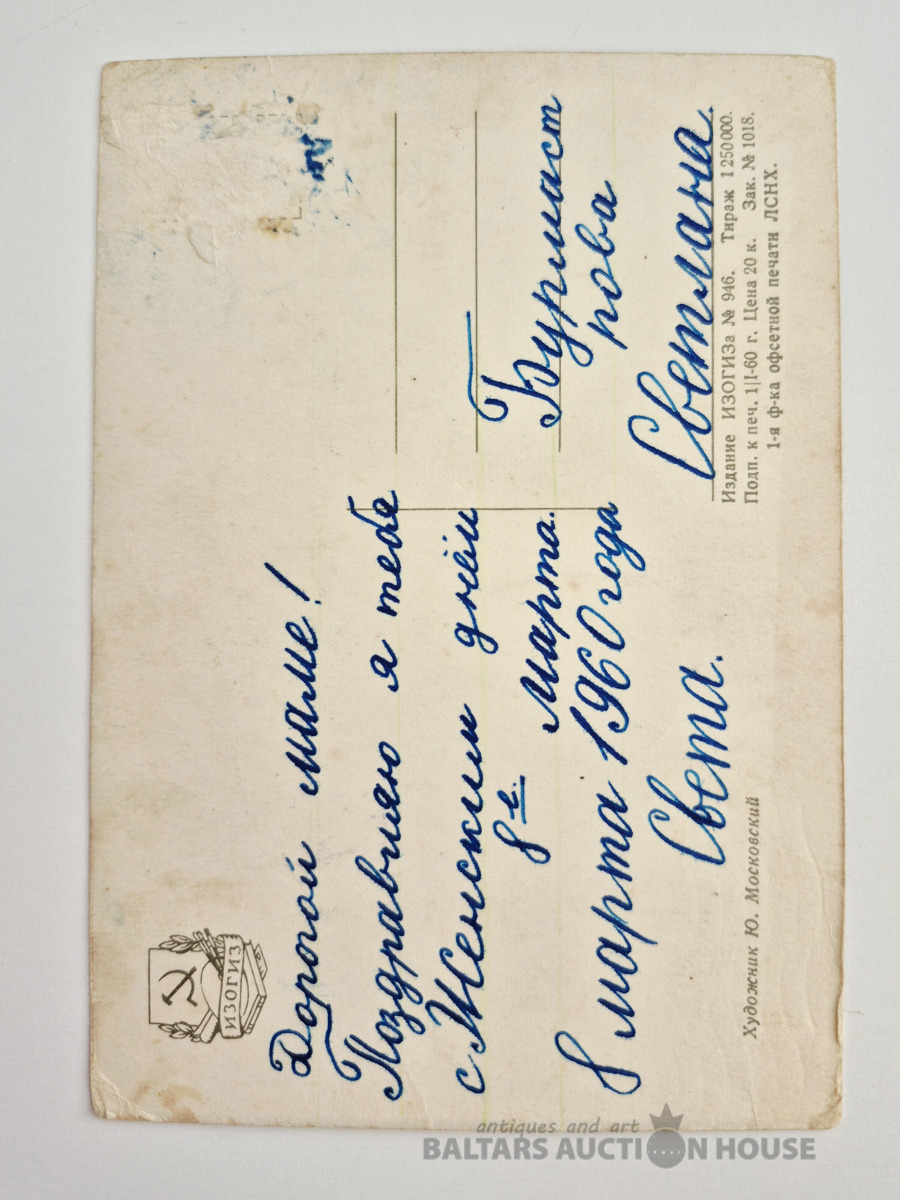 ИЗОГИЗ
Дорогой маме!
Поздравляю я тебе
с Женским днём
8 е. марта.
8 марта 1960 года
Света.
Художник Ю. Московский
Бурмаст
рова
Светлана.
Издание ИЗОГИЗа № 946. Тираж 1 250 000.
Подп. к печ. 1|I-60 г. Цена 20 к. Зак. № 1018.
1-я ф-ка офсетной печати ЛСНХ.
antiques and art
BALTARS AUCTION HOUSE